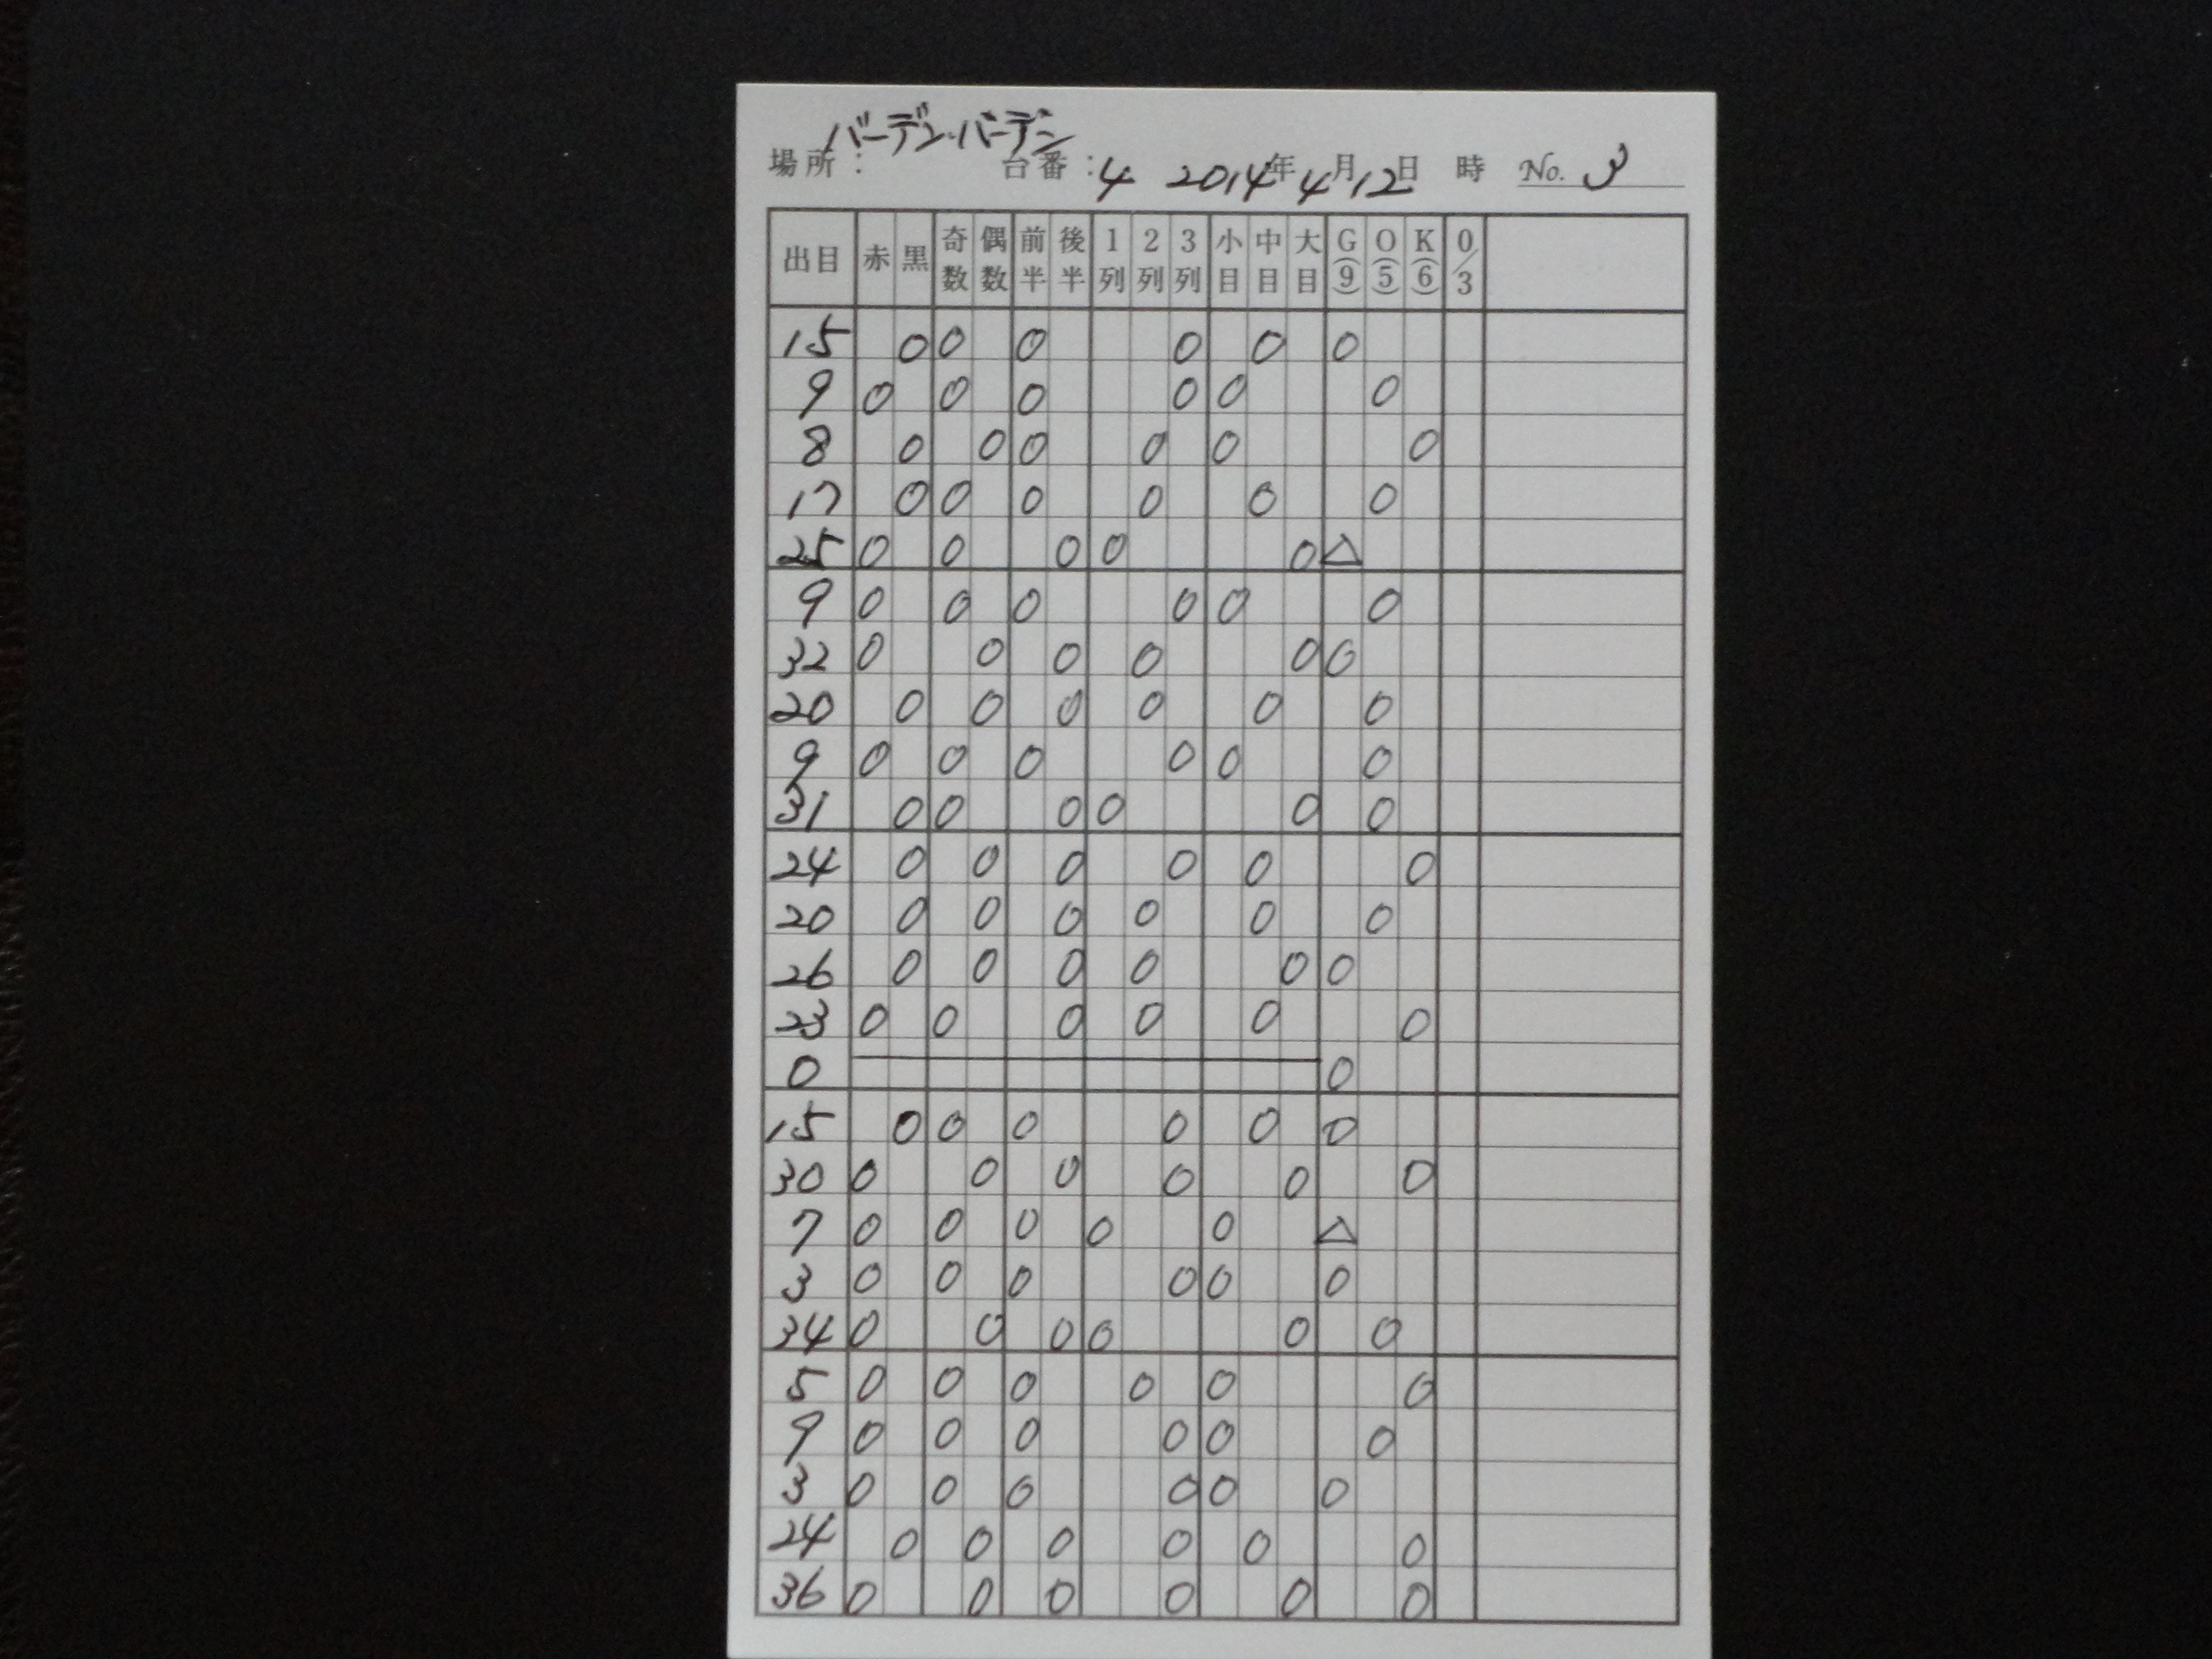 バーデン・バーデン
場所: 台番:4 2014年4月12日 時 No. 3
出目 赤 黒 奇数 偶数 前半 後半 1列 2列 3列 小目 中目 大目 G(9) O(5) K(6) 0/3
15 0 0 0 0 0 0
9 0 0 0 0 0 0
8 0 0 0 0 0 0
17 0 0 0 0 0 0
25 0 0 0 0 0 △
9 0 0 0 0 0 0
32 0 0 0 0 0 0
20 0 0 0 0 0 0
9 0 0 0 0 0 0
31 0 0 0 0 0 0
24 0 0 0 0 0 0
20 0 0 0 0 0 0
26 0 0 0 0 0 0
23 0 0 0 0 0 0
0 0
15 0 0 0 0 0 0
30 0 0 0 0 0 0
7 0 0 0 0 0 △
3 0 0 0 0 0 0
34 0 0 0 0 0 0
5 0 0 0 0 0 0
9 0 0 0 0 0 0
3 0 0 0 0 0 0
24 0 0 0 0 0 0
36 0 0 0 0 0 0